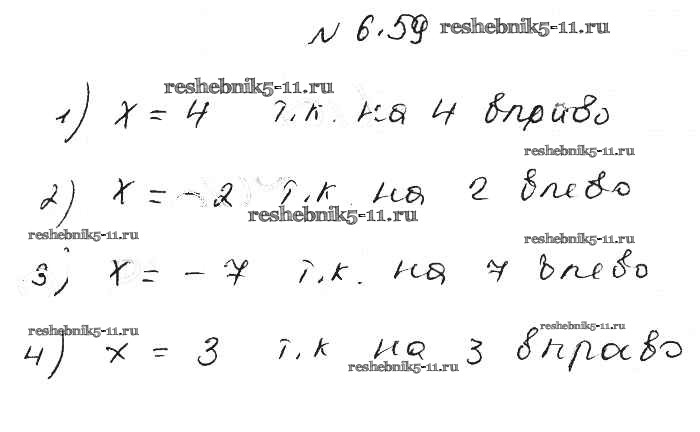 N 6.59 reshebnik5-11.ru
reshebnik5-11.ru
1) x = 4 т.к. на 4 вправо
reshebnik5-11.ru
2) x = -2 т.к. на 2 влево
reshebnik5-11.ru
reshebnik5-11.ru
reshebnik5-11.ru
3) x = -7 т.к. на 7 влево
reshebnik5-11.ru
reshebnik5-11.ru
4) x = 3 т.к на 3 вправо
reshebnik5-11.ru